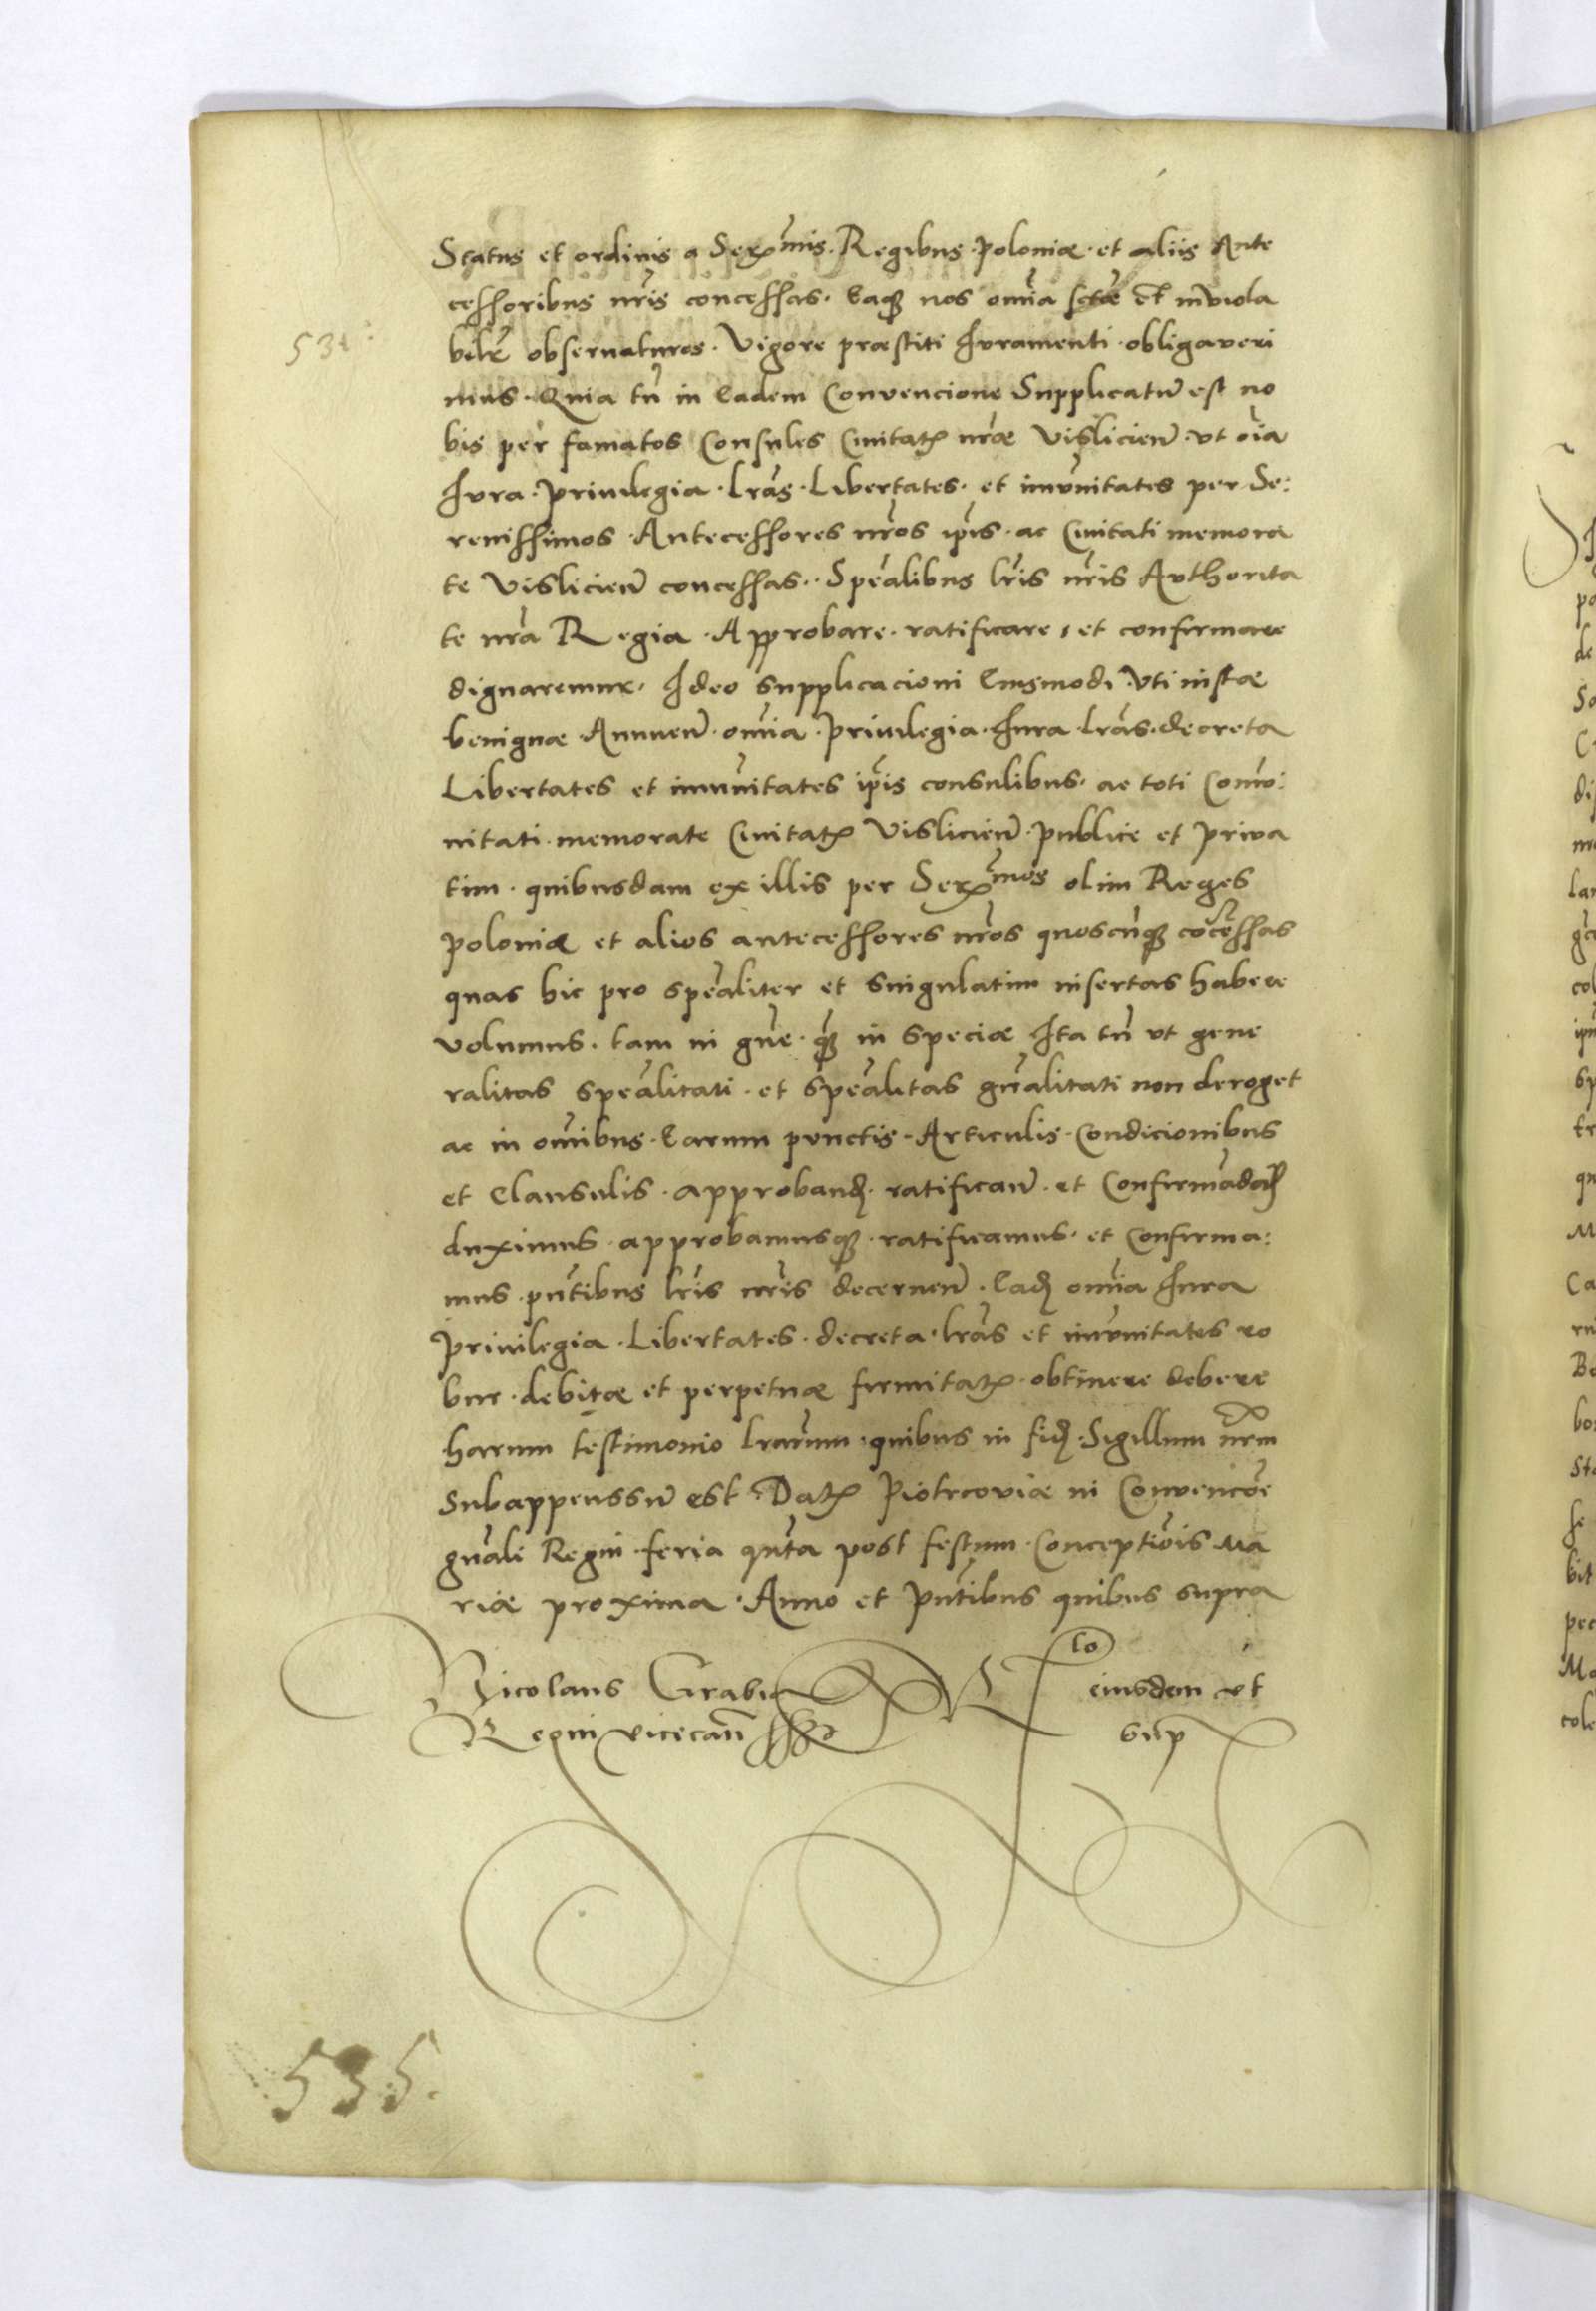 Status et ordinis a Serxmis. Regibus. Poloniæ. et aliis Ante
cessoribus nr̃is concessas. Eaqꝫ nos om̃ia sctæ et inviola
bilr̃ observaturos. Vigore præstiti Iuramenti. obligaveri
mus. Quia tñ in Eadem Convencione Supplicatũ est no
bis per famatos Consules Civitatꝭ nr̃æ Visliciẽn. ut oĩa
Iura. Privilegia. lr̃as. Libertates. et imũnitates per Se:
renissimos. Antecessores nr̃os ip̃is. ac Civitati memora
te Visliciẽn concessas. Spẽalibus lr̃is nr̃is Authorita
te nr̃a Regia. Approbare. ratificare, et confirmare
dignaremur. Ideo supplicacioni Eiusmodi. Uti iustæ
benignæ. Annueñ. om̃ia. Privilegia. Iura. lr̃as. decreta
Libertates et imũnitates ip̃is consulibus. ac toti Com̃u:
nitati. memorate Civitatꝭ Visliciẽn. Publice et Priva
tim. quibusdam ex illis per Serxmos olim Reges
Poloniæ et alios antecessores nr̃os quoscũqꝫ cõcessas
quas hic pro spẽaliter et singulatim insertas habere
volumus. tam in gñe. qꝫ in speciæ Ita tñ ut gene
ralitas spẽalitati. et spẽalitas gñalitati non deroget
ac in om̃ibus. Earum punctis. Articulis. Condicionibus
et Clausulis. approbanđ. ratificañ. et Confirmãdađ
duximus. approbamusqꝫ. ratificamus. et Confirma:
mus. pñtibus lr̃is nr̃is decerneñ. Eađ om̃ia Iura
Privilegia. Libertates. decreta. lr̃as et imũnitates ro
bur. debitæ et perpetuæ firmitatꝭ. obtinere debere
harum testimonio lr̃arum. quibus in fiđ. Sigillum nr̃m
Subappenssũ est. Datꝭ Piotrcoviæ in Convencõe
gñali Regni. feria qũta post festum. Conceptiõis Ma
riæ proxima. Anno et Pñtibus quibus supra
Nicolaus Grabia
Regni vicecañ sst
Rlo
eiusdem ut
sup
531
535.